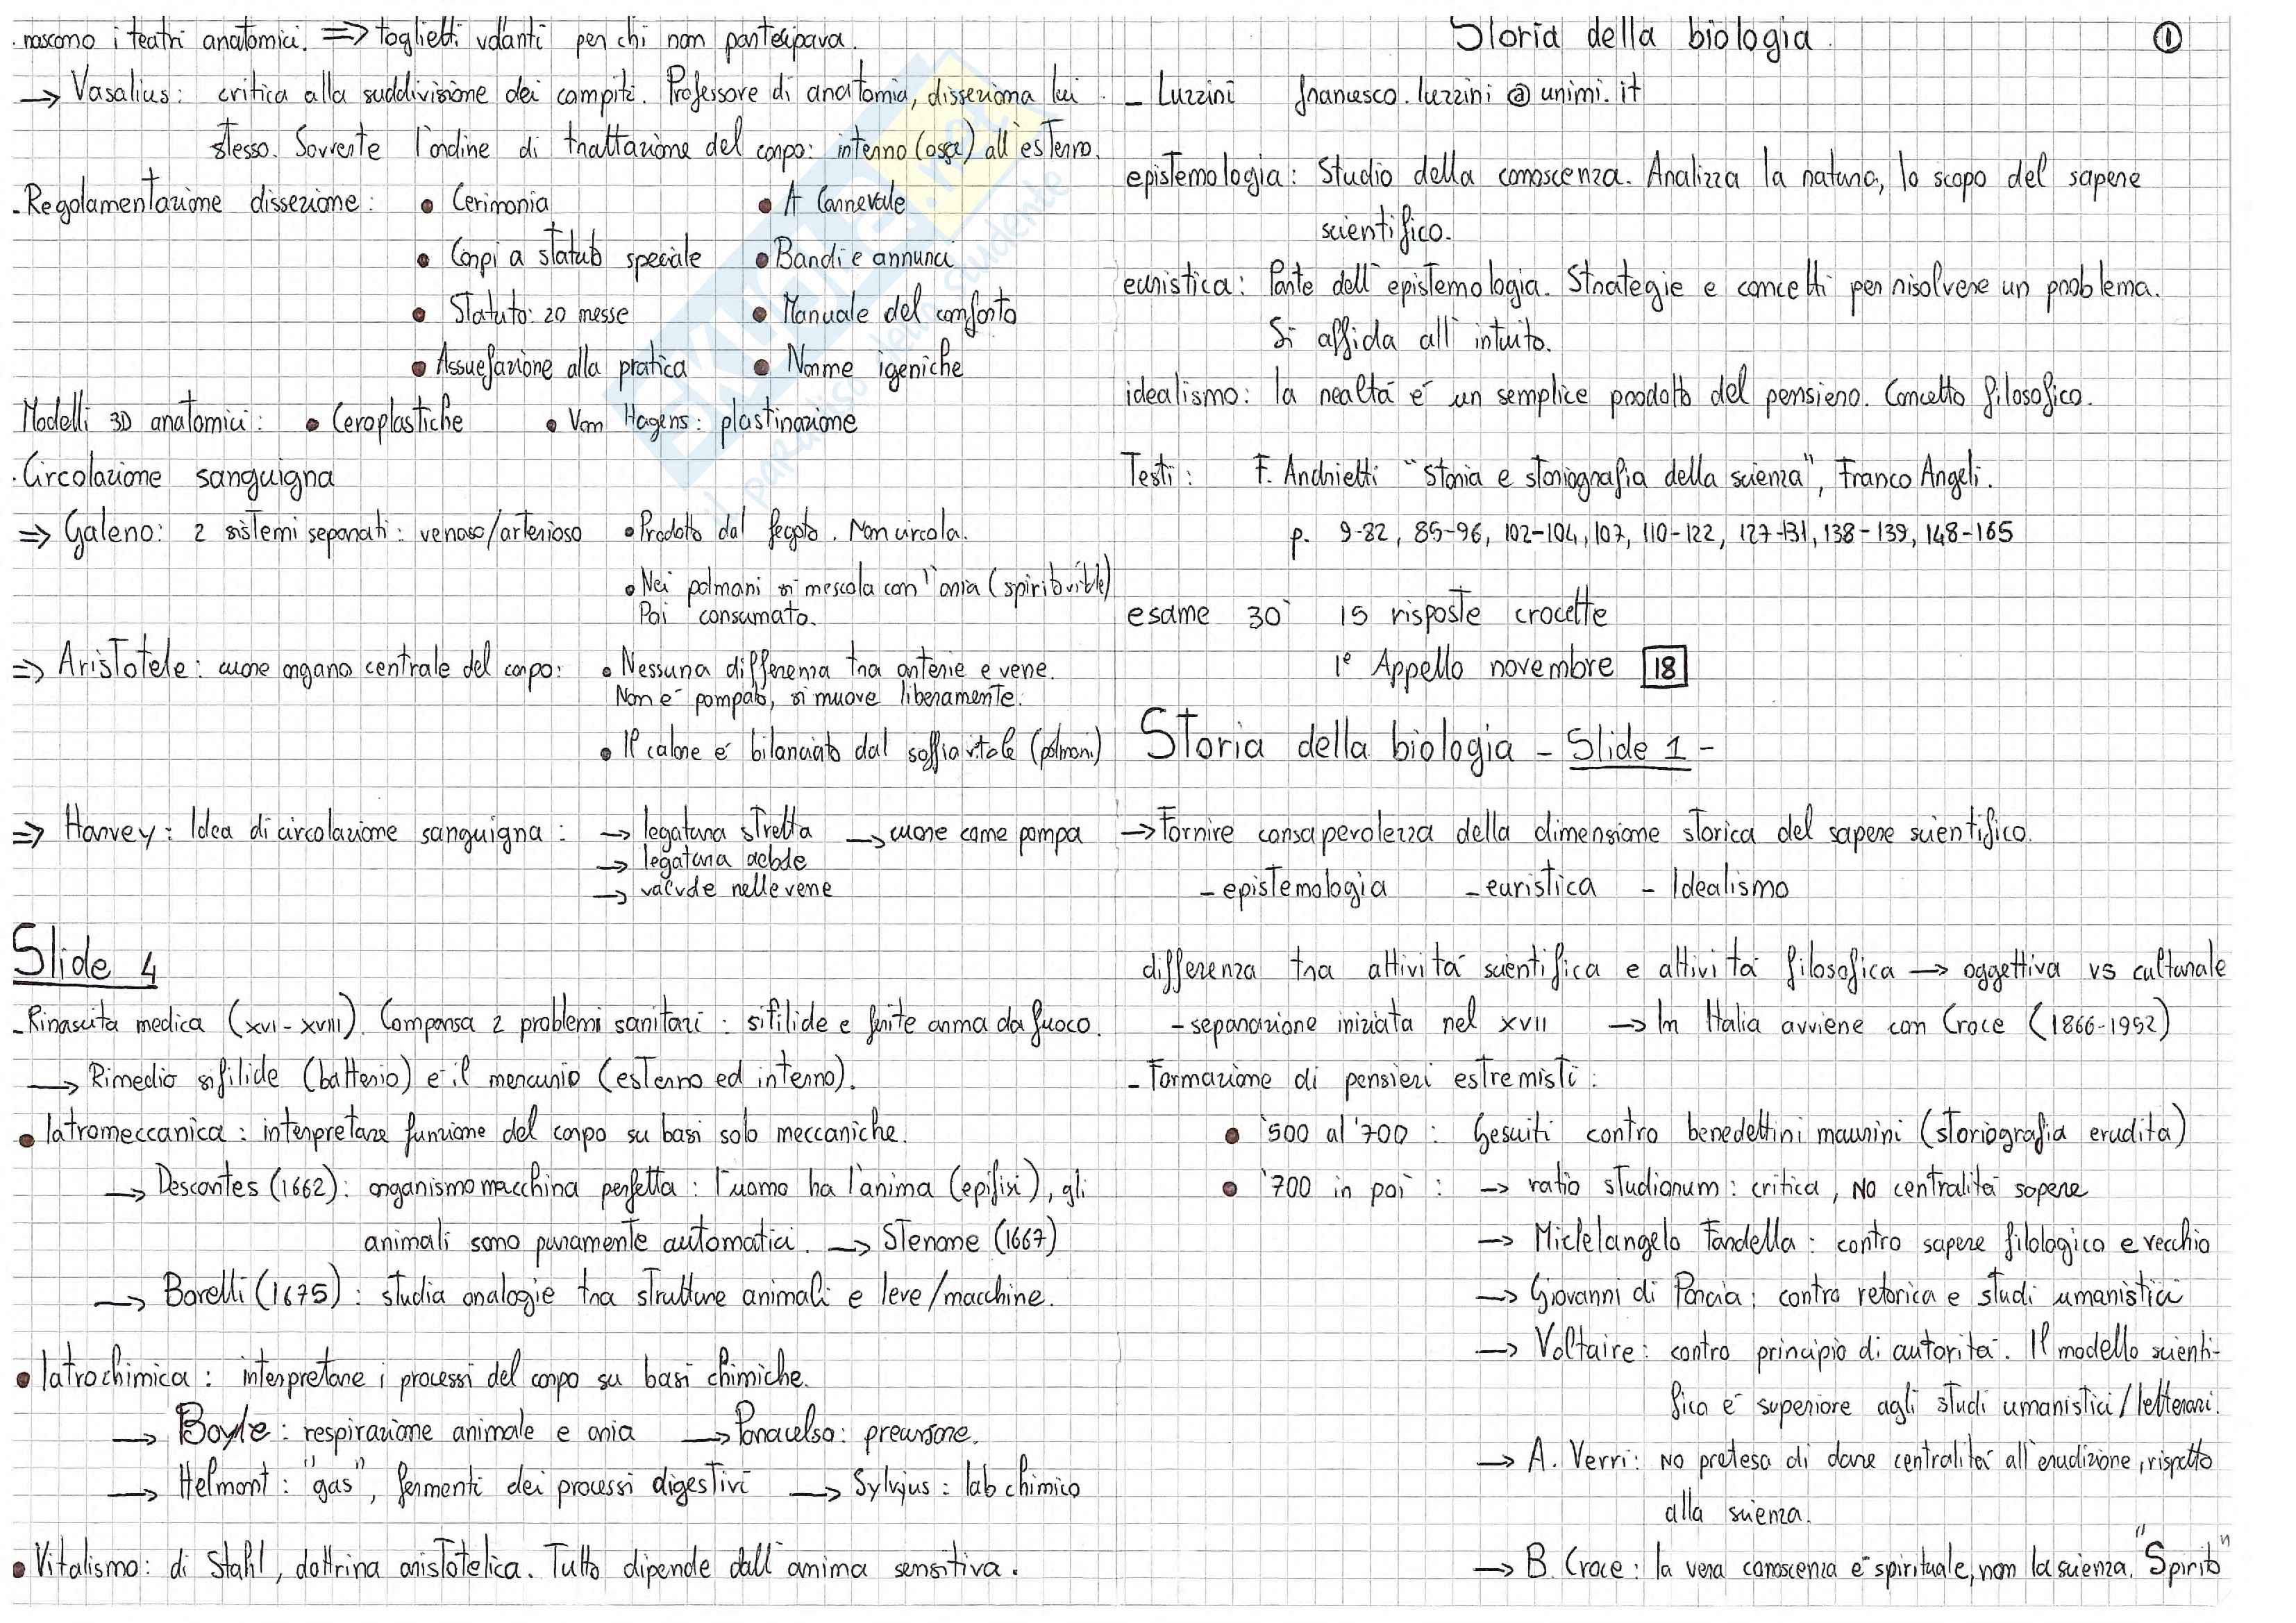 . nascono i teatri anatomici. => foglietti volanti per chi non partecipava.
-> Vasalius: critica alla suddivisione dei compiti. Professore di anatomia, disseziona lui
stesso. Sovverte l'ordine di trattazione del corpo: interno (ossa) all'esterno.
- Regolamentazione dissezione: • Cerimonia • A Carnevale
• Corpi a statuto speciale • Bandi e annunci
• Statuto: 20 messe • Manuale del conforto
• Assuefazione alla pratica • Norme igeniche
Modelli 3D anatomici: • Ceroplastiche • Von Hagens: plastinazione
. Circolazione sanguigna
=> Galeno: 2 sistemi separati: venoso/arterioso • Prodotto dal fegato. Non circola.
• Nei polmoni si mescola con l'aria (spirito vitale)
Poi consumato.
=> Aristotele: cuore organo centrale del corpo: • Nessuna differenza tra arterie e vene.
Non è pompato, si muove liberamente.
• Il calore è bilanciato dal soffio vitale (polmoni)
=> Harvey: Idea di circolazione sanguigna: -> legatura stretta -> cuore come pompa
-> legatura
-> nelle vene
Slide 4
- Rinascita medica (XVI-XVIII). Comparsa 2 problemi sanitari: sifilide e ferite arma da fuoco.
-> Rimedio sifilide (batterio) è il mercurio (esterno ed interno).
• Iatromeccanica: interpretare funzione del corpo su basi solo meccaniche.
-> Descartes (1662): organismo macchina perfetta: l'uomo ha l'anima (epifisi), gli
animali sono puramente automatici. -> Stenone (1667)
-> Borelli (1675): studia analogie tra strutture animali e leve/macchine.
• Iatrochimica: interpretare i processi del corpo su basi chimiche.
-> Boyle: respirazione animale e aria -> Paracelso: precursore.
-> Helmont: "gas", fermenti dei processi digestivi -> Sylvjus: lab chimico
• Vitalismo: di Stahl, dottrina aristotelica. Tutto dipende dall'anima sensitiva.
Storia della biologia ①
- Luzzini francesco.luzzini@unimi.it
epistemologia: Studio della conoscenza. Analizza la natura, lo scopo del sapere
scientifico.
euristica: Parte dell'epistemologia. Strategie e concetti per risolvere un problema.
Si affida all'intuito.
idealismo: la realtà è un semplice prodotto del pensiero. Concetto filosofico.
Testi: F. Andrietti "Storia e storiografia della scienza", Franco Angeli.
p. 9-82, 85-96, 102-104, 107, 110-122, 127-131, 138-139, 148-165
esame 30' 15 risposte crocette
1° Appello novembre 18
Storia della biologia - Slide 1 -
-> Fornire consapevolezza della dimensione storica del sapere scientifico.
- epistemologia - euristica - Idealismo
differenza tra attività scientifica e attività filosofica -> oggettiva vs culturale
- separazione iniziata nel XVII -> In Italia avviene con Croce (1866-1952)
- Formazione di pensieri estremisti:
• '500 al '700: Gesuiti contro benedettini maurini (storiografia erudita)
• '700 in poi: -> ratio studiorum: critica, NO centralità sapere
-> Michelangelo Fardella: contro sapere filologico e vecchio
-> Giovanni di Porcia: contro retorica e studi umanistici
-> Voltaire: contro principio di autorità. Il modello scienti-
fico è superiore agli studi umanistici/letterari.
-> A. Verri: NO pretesa di dare centralità all'erudizione, rispetto
alla scienza.
-> B. Croce: la vera conoscenza è spirituale, non la scienza. "Spirito"